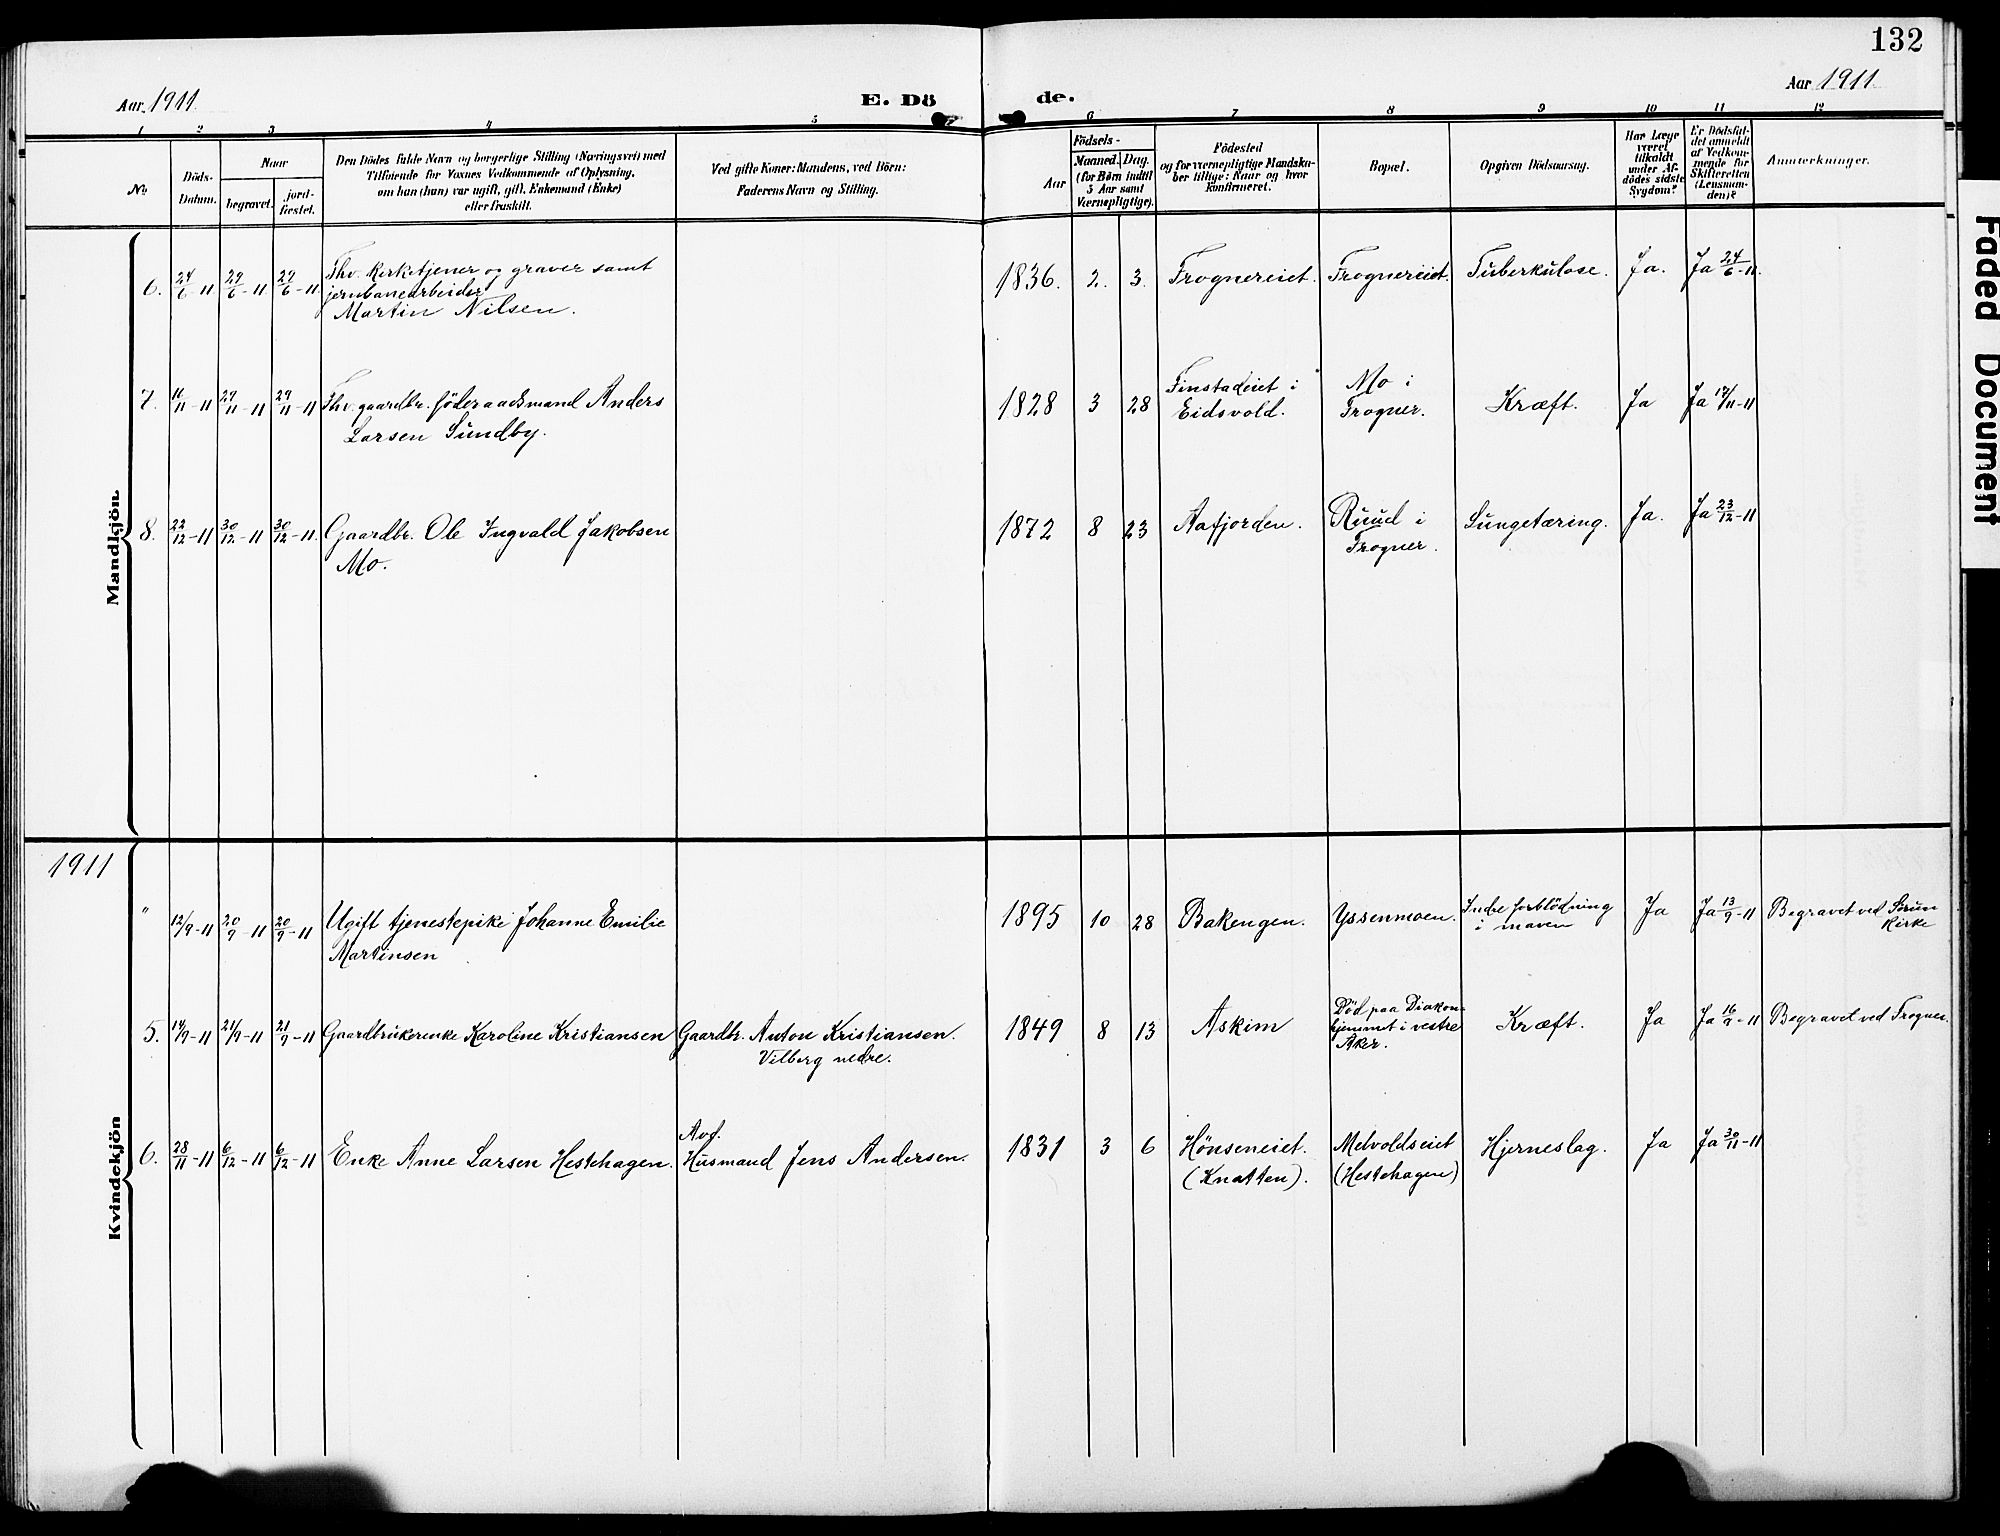 132
Aar 1911
E. Dö
de.
Aar 1911
1 2 3 4 5 6 7 8 9 10 11 12
No
Döds-
Datum.
Naar
begravet.
jord-
fæstet.
Den Dödes fulde Navn og borgerlige Stilling (Næringsvei) med
Tilföiende for Voxnes Vedkommende af Oplysning,
om han (hun) var ugift, gift, Enkemand (Enke)
eller fraskilt.
Ved gifte Koner: Mandens, ved Börn:
Faderens Navn og Stilling.
Födsels-
Aar
Maaned. Dag.
(for Börn indtil
5 Aar samt
Værnepligtige).
Födested
og for værnepligtige Mandska-
ber tillige: Naar og hvor
konfirmeret.
Bopæl.
Opgiven Dödsaarsag.
Har Læge
været
tilkaldt
under Af-
dödes sidste
Sygdom?
Er Dödsfal-
det anmeldt
af Vedkom-
mende for
Skifteretten
(Lensman-
den)?
Anmærkninger.
Mandkjön
6. 24/6-11 29/6-11 29/6-11 Fhv. kirketjener og graver samt
jernbanearbeider
Martin Nilsen.
1836. 2. 3. Frognereiet. Frognereiet. Tuberkulose. Ja. Ja 24/6-11.
7. 16/11-11 29/11-11 29/11-11 Fhv. gaardbr. föderaadsmand Anders
Larsen Sundby.
1828 3 28 Finstadeiet i
Eidsvold.
Mo i
Frogner.
Kræft. Ja Ja 17/11-11
8. 22/12-11 30/12-11 30/12-11. Gaardbr. Ole Ingvald Jakobsen
Mo.
1872 8 23 Aafjorden. Ruud i
Frogner.
Lungetæring. Ja. Ja 23/12-11
1911
Kvindekjön
" 12/9-11 20/9-11 20/9-11 Ugift tjenestepike Johanne Emilie
Martinsen
1895 10 28 Bakengen. Yssenmoen. Indre forblödning
i maven
Ja Ja 13/9-11 Begravet ved Sørum
Kirke
5. 14/9-11 21/9-11 21/9-11 Gaardbrukerenke Karoline Kristiansen Gaardbr. Anton Kristiansen.
Vilberg nedre.
1849 8 13 Askim Død paa Diakon-
hjemmet i vestre
Aker.
Kræft. Ja Ja 16/9-11 Begravet ved Frogner.
6. 28/11-11 6/12-11 6/12-11 Enke Anne Larsen Hestehagen. Avd.
Husmand Jens Andersen.
1831 3 6 Hönseneiet.
(Knatten).
Melvoldseiet
(Hestehagen)
Hjerneslag. Ja Ja 30/11-11
Faded Document